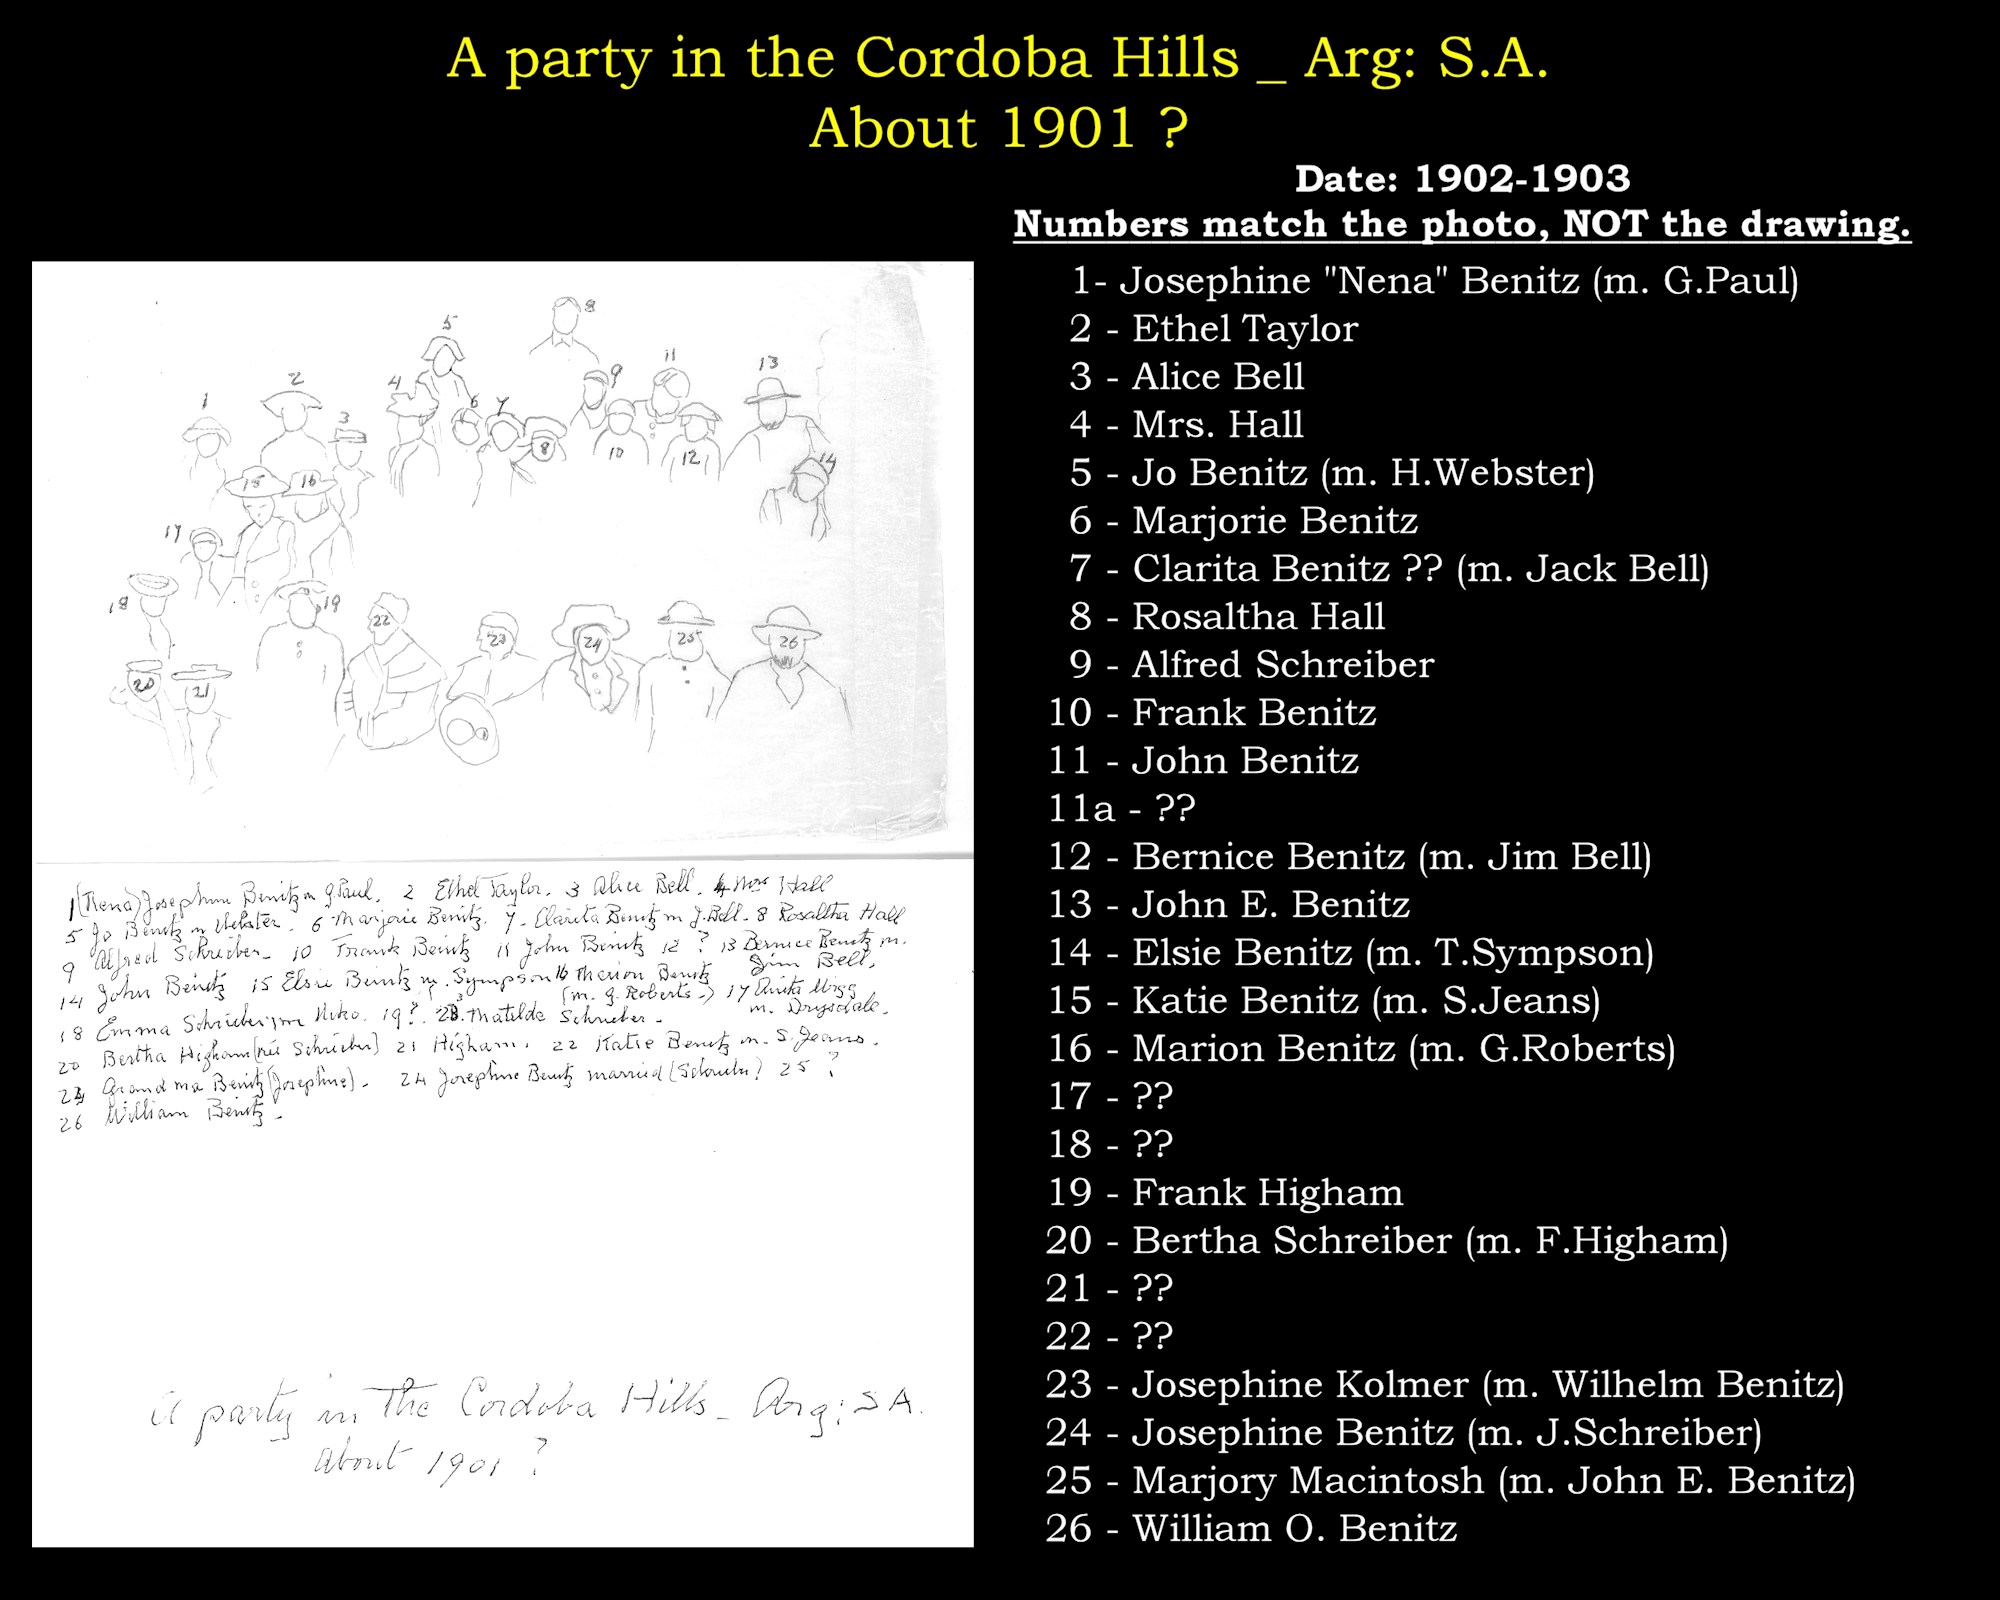 A party in the Cordoba Hills _ Arg: S.A.
About 1901 ?
Date: 1902-1903
Numbers match the photo, NOT the drawing.
1- Josephine "Nena" Benitz (m. G.Paul)
2 - Ethel Taylor
3 - Alice Bell
4 - Mrs. Hall
5 - Jo Benitz (m. H.Webster)
6 - Marjorie Benitz
7 - Clarita Benitz ?? (m. Jack Bell)
8 - Rosaltha Hall
9 - Alfred Schreiber
10 - Frank Benitz
11 - John Benitz
11a - ??
12 - Bernice Benitz (m. Jim Bell)
13 - John E. Benitz
14 - Elsie Benitz (m. T.Sympson)
15 - Katie Benitz (m. S.Jeans)
16 - Marion Benitz (m. G.Roberts)
17 - ??
18 - ??
19 - Frank Higham
20 - Bertha Schreiber (m. F.Higham)
21 - ??
22 - ??
23 - Josephine Kolmer (m. Wilhelm Benitz)
24 - Josephine Benitz (m. J.Schreiber)
25 - Marjory Macintosh (m. John E. Benitz)
26 - William O. Benitz
8
5
11
13
2
4
9
1
3
6 7
8
10
12
14
15
16
17
18
19
22
23
24
25
26
20
21
1 (Nena) Josephine Benitz m G Paul. 2 Ethel Taylor. 3 Alice Bell. 4 Mrs Hall
5 Jo Benitz m Webster. 6 Marjorie Benitz. 7 - Clarita Benitz m J. Bell - 8 Rosaltha Hall
9 Alfred Schreiber - 10 Frank Benitz 11 John Benitz 12 ? 13 Bernice Benitz m.
Jim Bell.
14 John Benitz 15 Elsie Benitz m. Sympson 16 Marion Benitz
(m. G. Roberts -) 17 Anita
m. Drysdale.
18 Emma Schrieber m Niko. 19 ?. 23. Matilde Schrieber -
20 Bertha Higham (née Schrieber) 21 Higham. 22 Katie Benitz m. S. Jeans.
Grand ma Benitz (Josephine) - 24 Josephine Benitz married (Schrieber) 25 ?
26 William Benitz -
A party in The Cordoba Hills - Arg: SA.
About 1901 ?